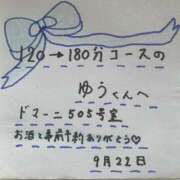 120→180分コースの
ゆうくんへ
ドマーニ505号室
お酒と事前予約ありがとう♡
9月22日